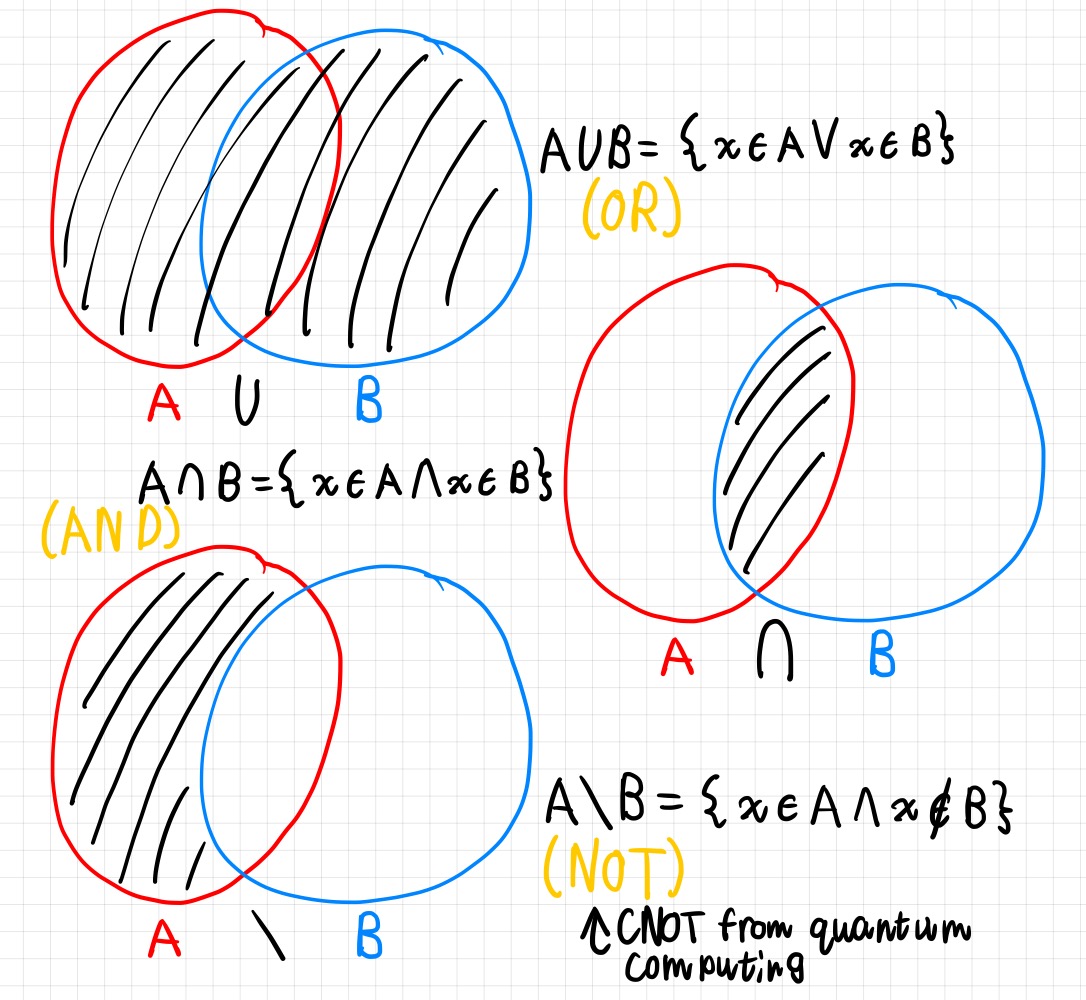 A∪B= {x∈A∨x∈B}
(OR)
A ∪ B
A∩B={x∈A∧x∈B}
(AND)
A ∩ B
A\B= {x∈A∧x∉B}
(NOT)
↑ CNOT from quantum
computing
A \ B